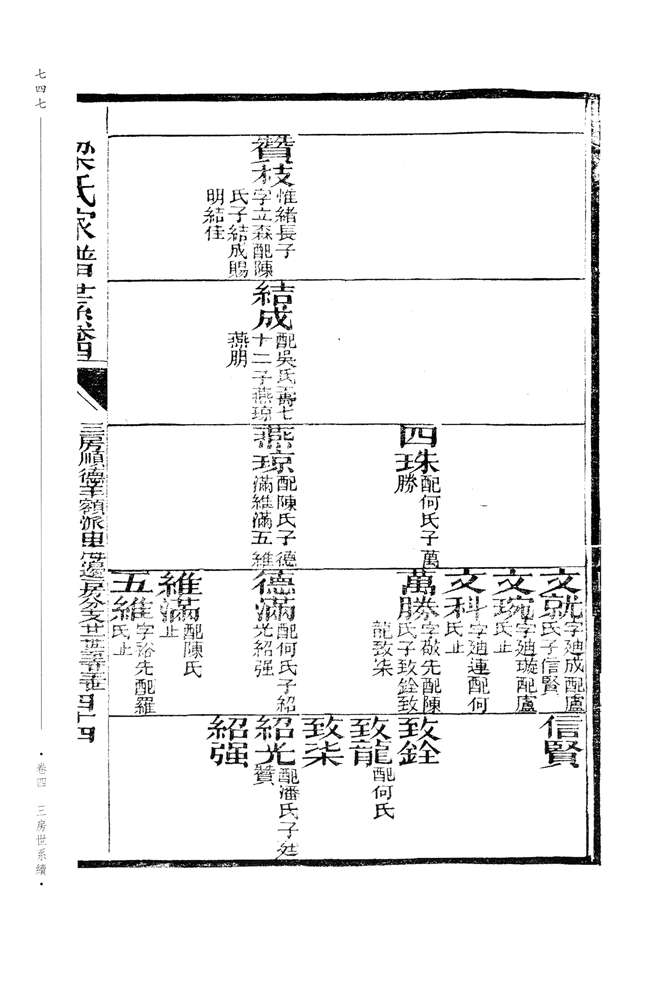 贊枝
惟緒長子
字立森配陳
氏子結成賜
明結佳
結成
配吳氏壽七
十二子燕琼
燕朋
四珠
配何氏子萬
勝
燕琼
配陳氏子德
滿維滿五維
文就
字廸成配盧
氏子信賢
文琬
字廸璇配盧
氏止
文科
字廸連配何
氏止
萬勝
字敬先配陳
氏子致銓致
龍致柒
德滿
配何氏子紹
光紹强
維滿
配陳氏
止
五維
字裕先配羅
氏止
信賢
致銓
致龍
配何氏
致柒
紹光
配潘氏子
贊
紹强
梁氏家譜世系卷四
三房順德羊額派
四十四
七四七
·卷四 三房世系續·